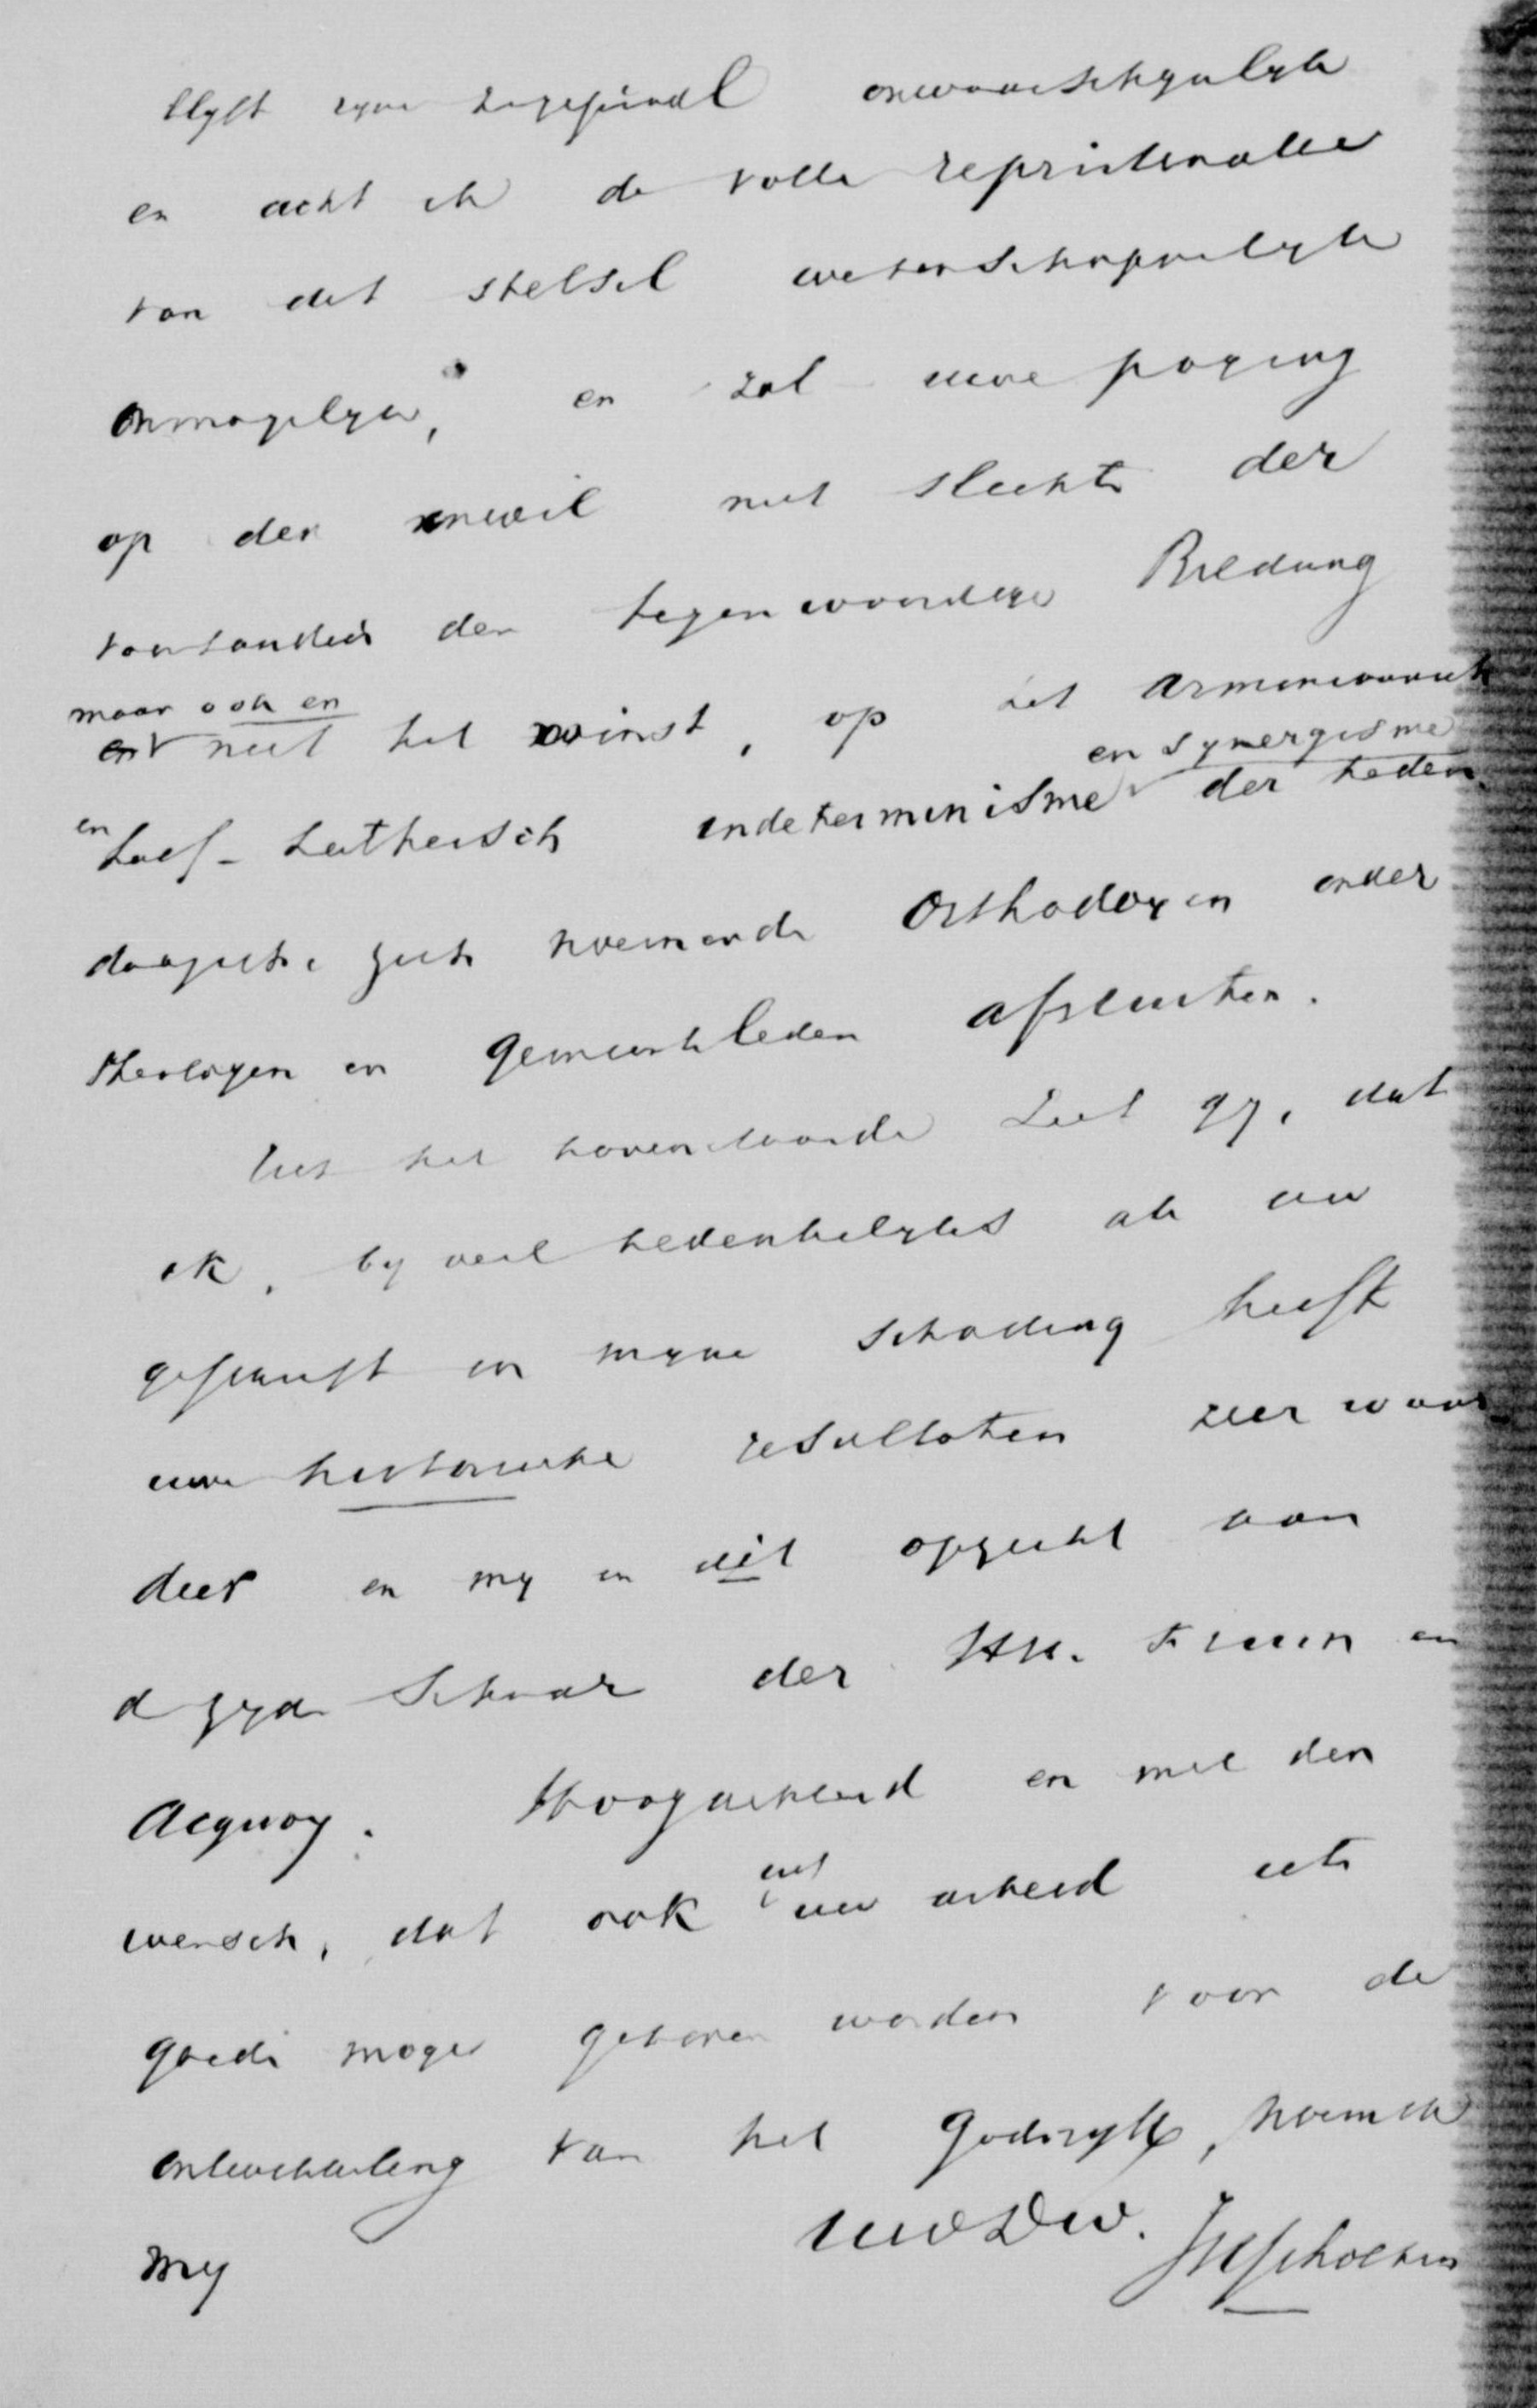 blyft zyne zegepraal onwaarschynlyk
en acht ik de volle repristinatie
van dit stelsel wetenschappelyk
onmogelyk, en zal uwe poging
op den onwil niet slechts der
voorstanders der tegenwoordige Bildung
maar ook en
niet het minst, op het Arminiaansch
en synergisme
en half-Luthersch indeterminisme der heden
daagsche zich noemende Orthodoxen onder
theologen en gemeenteleden afstuiten.
Uit het bovenstaande ziet gy, dat
ik, by veel bedenkelyks als uw
geschrift in myne schatting heeft
uwe historische resultaten zeer waar
deer en my in dit opzicht aan
d zyde schaar der HH. Fruin en
Acquoy. Hoogachtend en met den
wensch, dat ook uit uw arbeid iets
goeds moge geboren worden voor de
ontwikkeling van het Godsryk, noem ik
my uw Dw. JHScholten